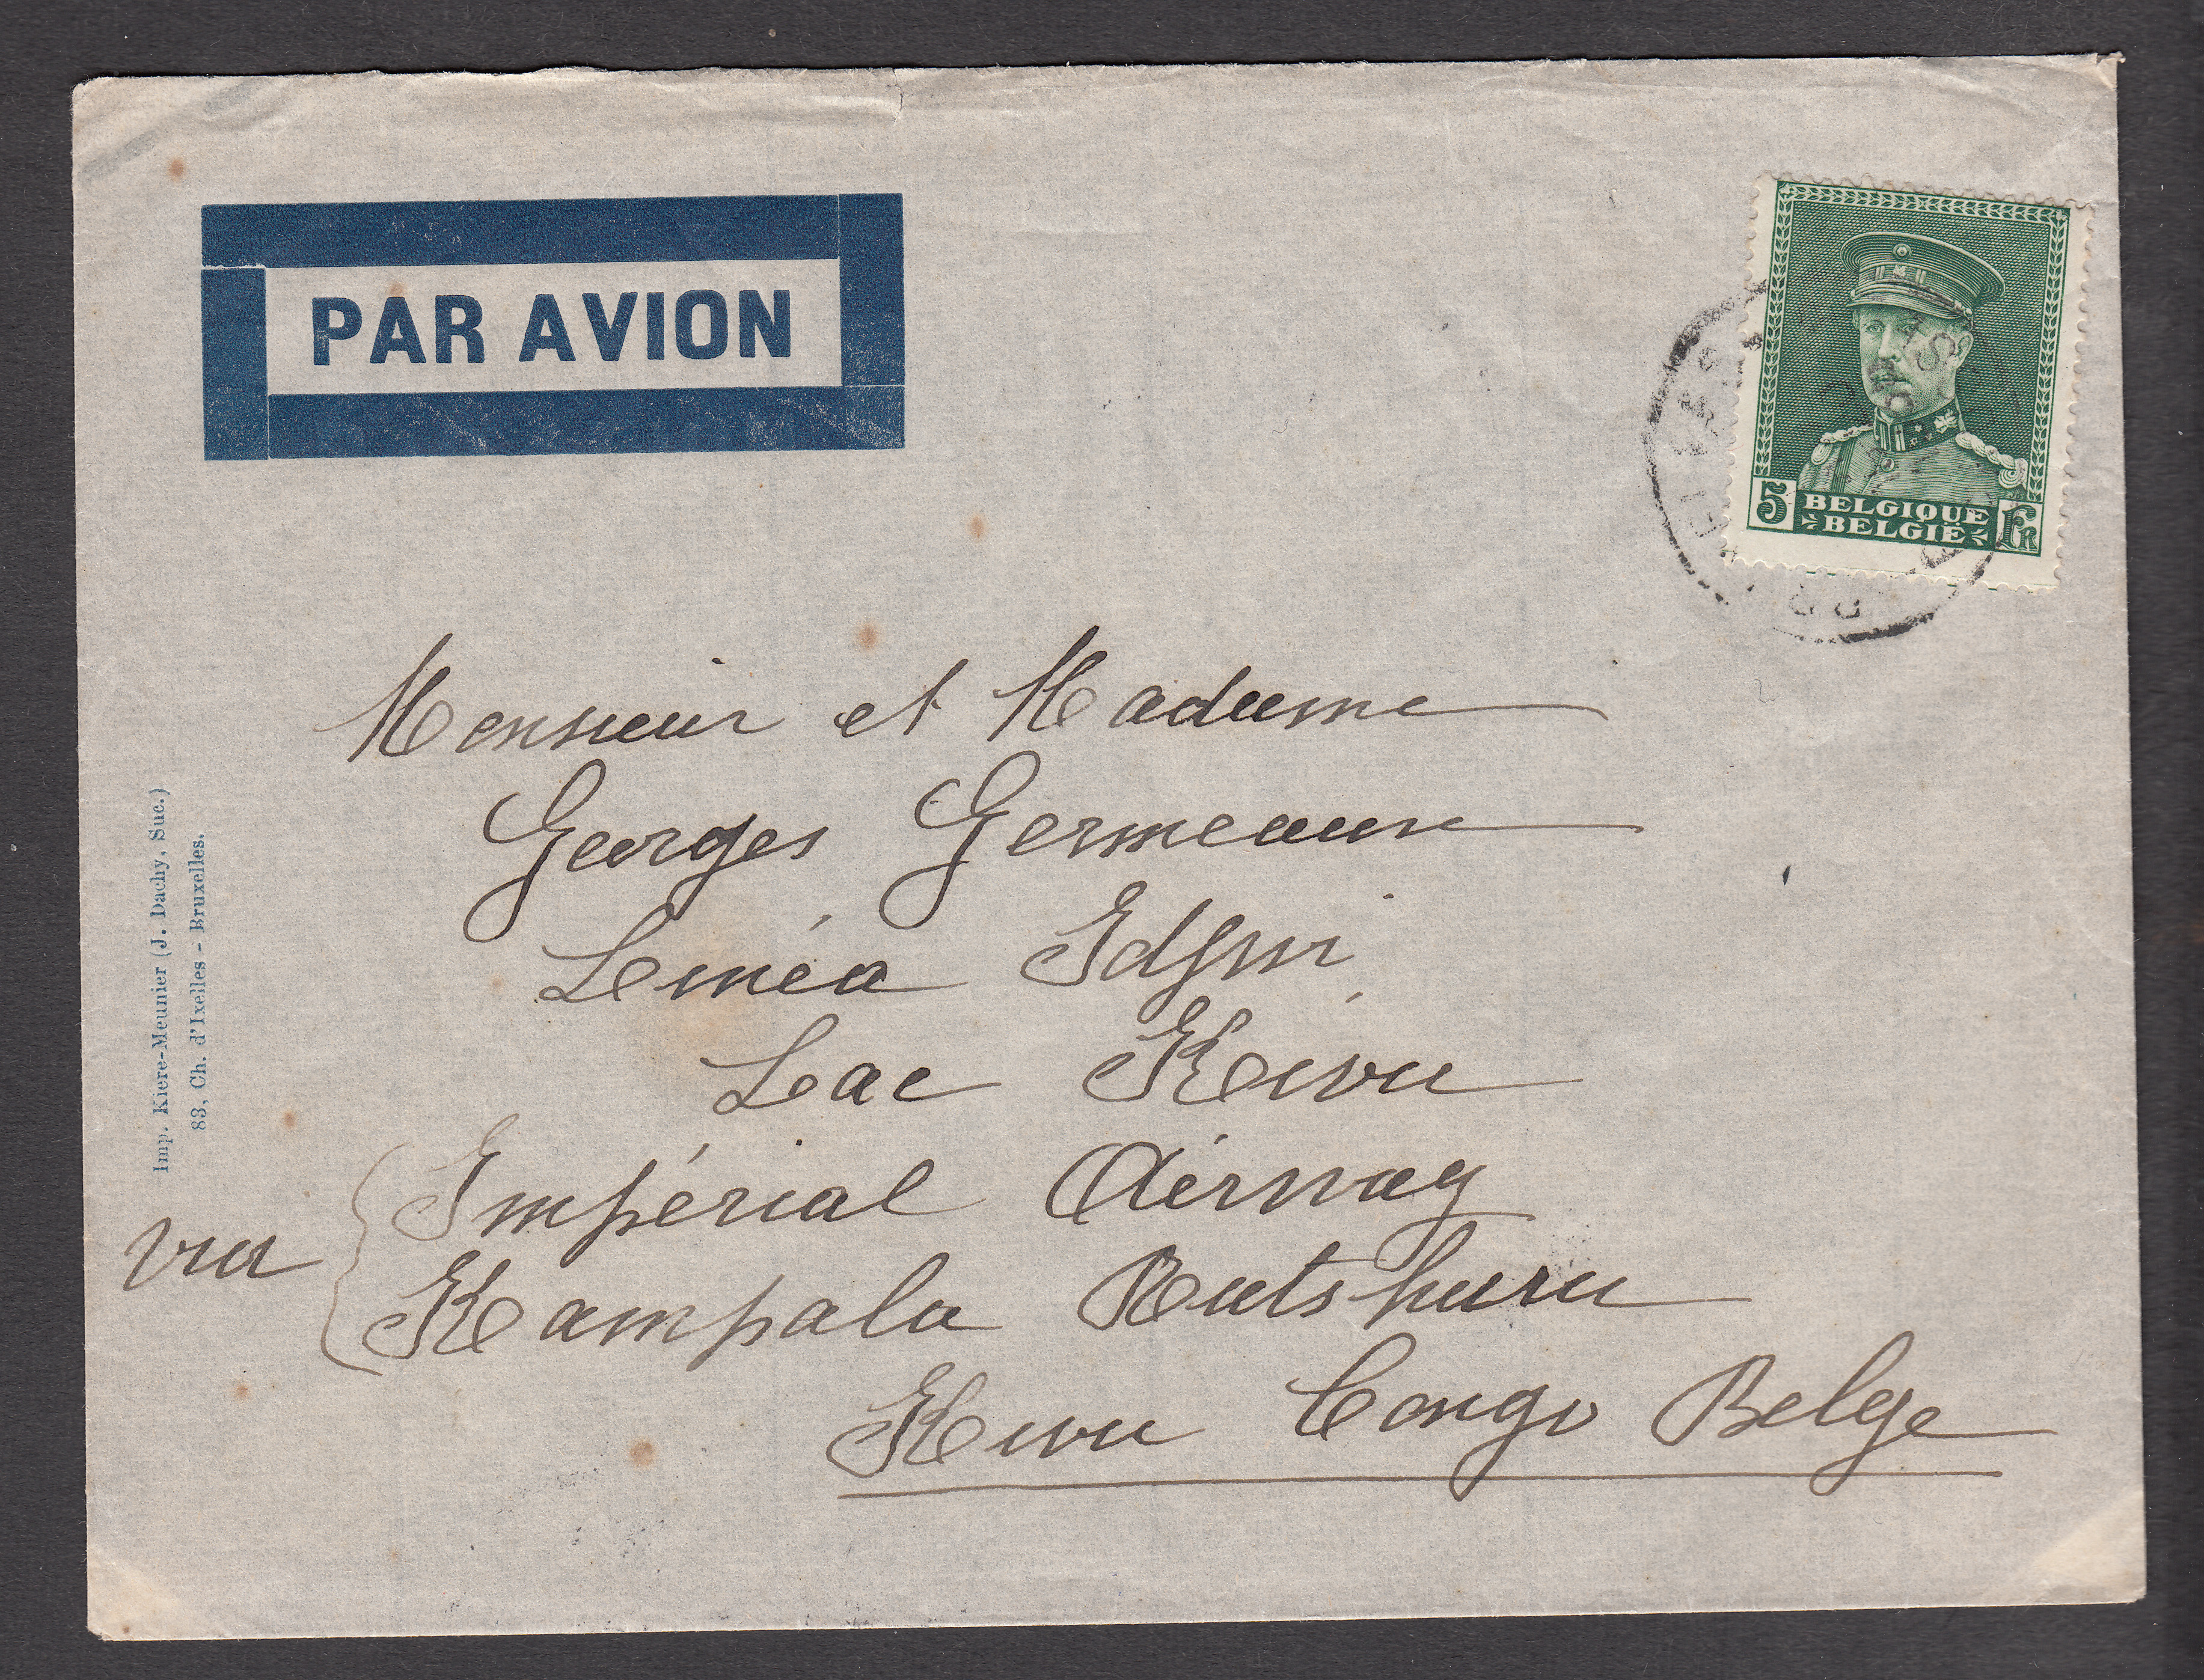 PAR AVION
5 BELGIQUE Fr
BELGIË
Monsieur et Madame
Georges
Linéa Idjwi
Lac Kivu
via
Impérial Airway
Kampala Rutshuru
Kivu Congo Belge
Imp. Kiere-Meunier (J. Dachy, Suc.)
83, Ch. d'Ixelles - Bruxelles.